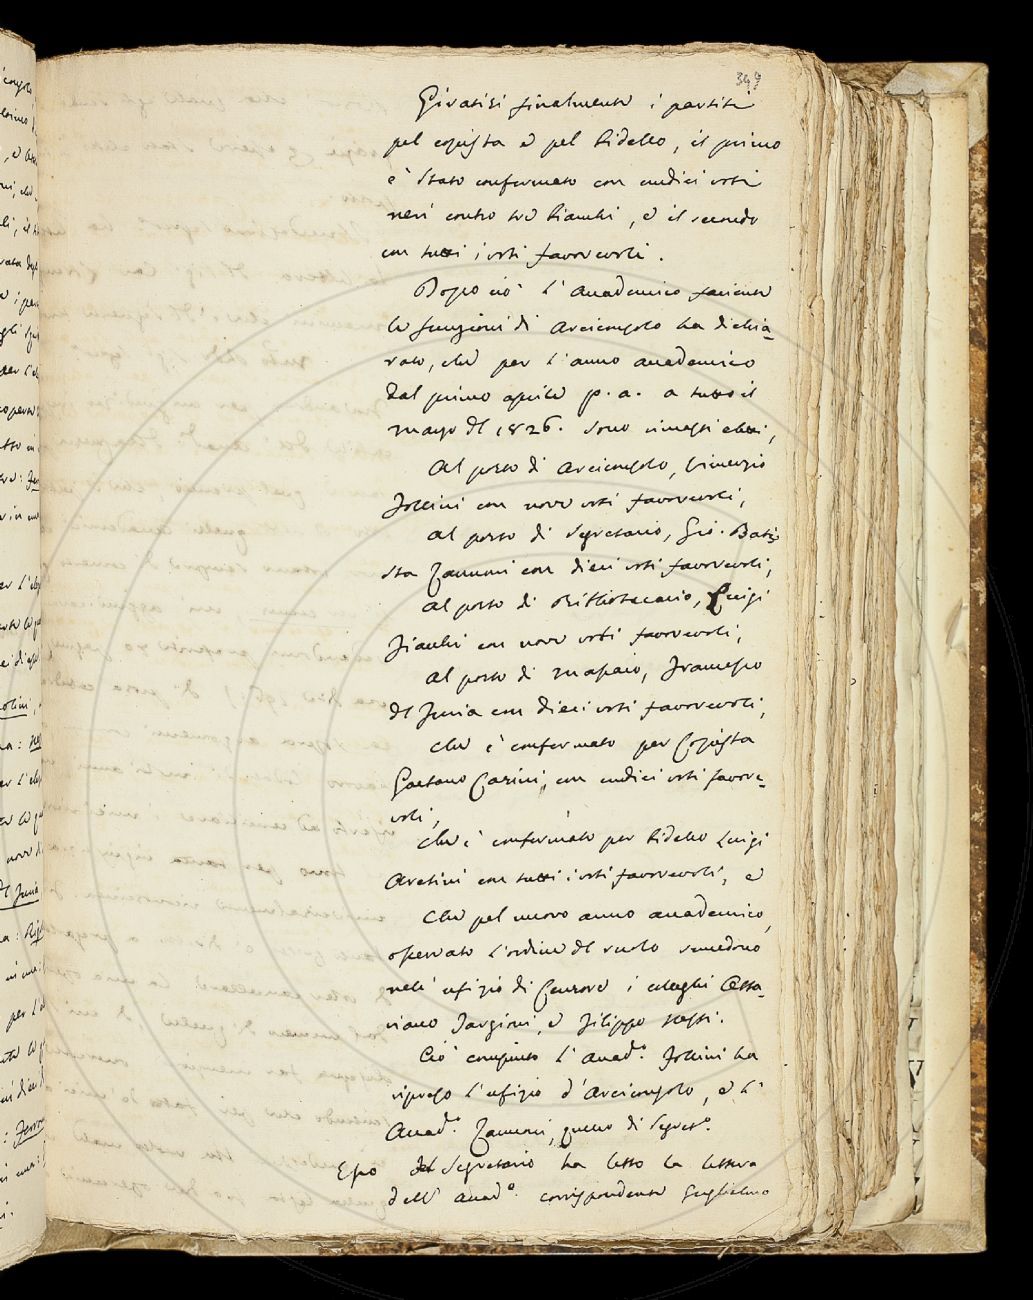 344
Giratisi finalmente i partiti
pel copista e pel bidello, il primo
è stato confermato con undici voti
neri contro tre bianchi, e il secondo
con tutti i voti favorevoli.
Dopo ciò l'Accademico facente
le funzioni di Arciconsolo ha dichia-
rato, che per l'anno accademico
dal primo aprile p.a. a tutto il
marzo del 1826. sono rimasti eletti,
Al posto di Arciconsolo,
Follini con nove voti favorevoli,
Al posto di Segretario, Gio. Bati-
sta Zannoni con dieci voti favorevoli,
Al posto di Bibliotecario, Luigi
Fiacchi con nove voti favorevoli,
Al posto di Massaio, Francesco
del Furia con dieci voti favorevoli,
Che è confermato per Copista
Gaetano Carini, con undici voti favore-
voli,
Che è confermato per bidello Luigi
Aretini con tutti i voti favorevoli, e
Che pel nuovo anno accademico,
osservato l'ordine del ruolo succedono
nell'ufizio di Censore i colleghi Otta-
viano Targioni, e Filippo Nesti.
Ciò compiuto l'Accad.º Follini ha
ripreso l'ufizio d'Arciconsolo, e l'
Accad.º Zannoni, quello di Segret.º
Esso Segretario ha letto la lettera
dell'Accad.º corrispondente Guglielmo